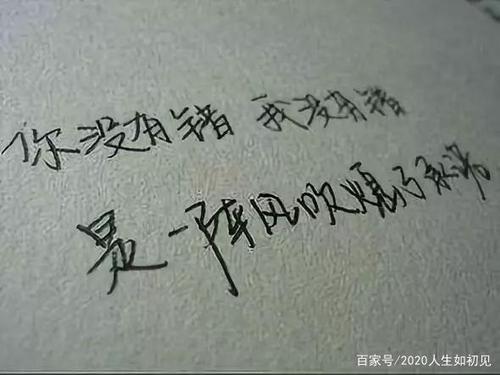 你没有错 我没有错
是一阵风吹熄了承诺
百家号/2020人生如初见